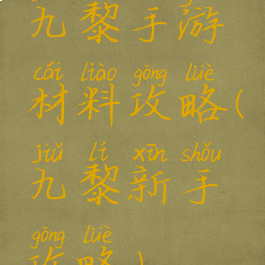 九黎手游
cái liào gōng lüè
材料攻略(
jiǔ lí xīn shǒu
九黎新手
gōng lüè
攻略)